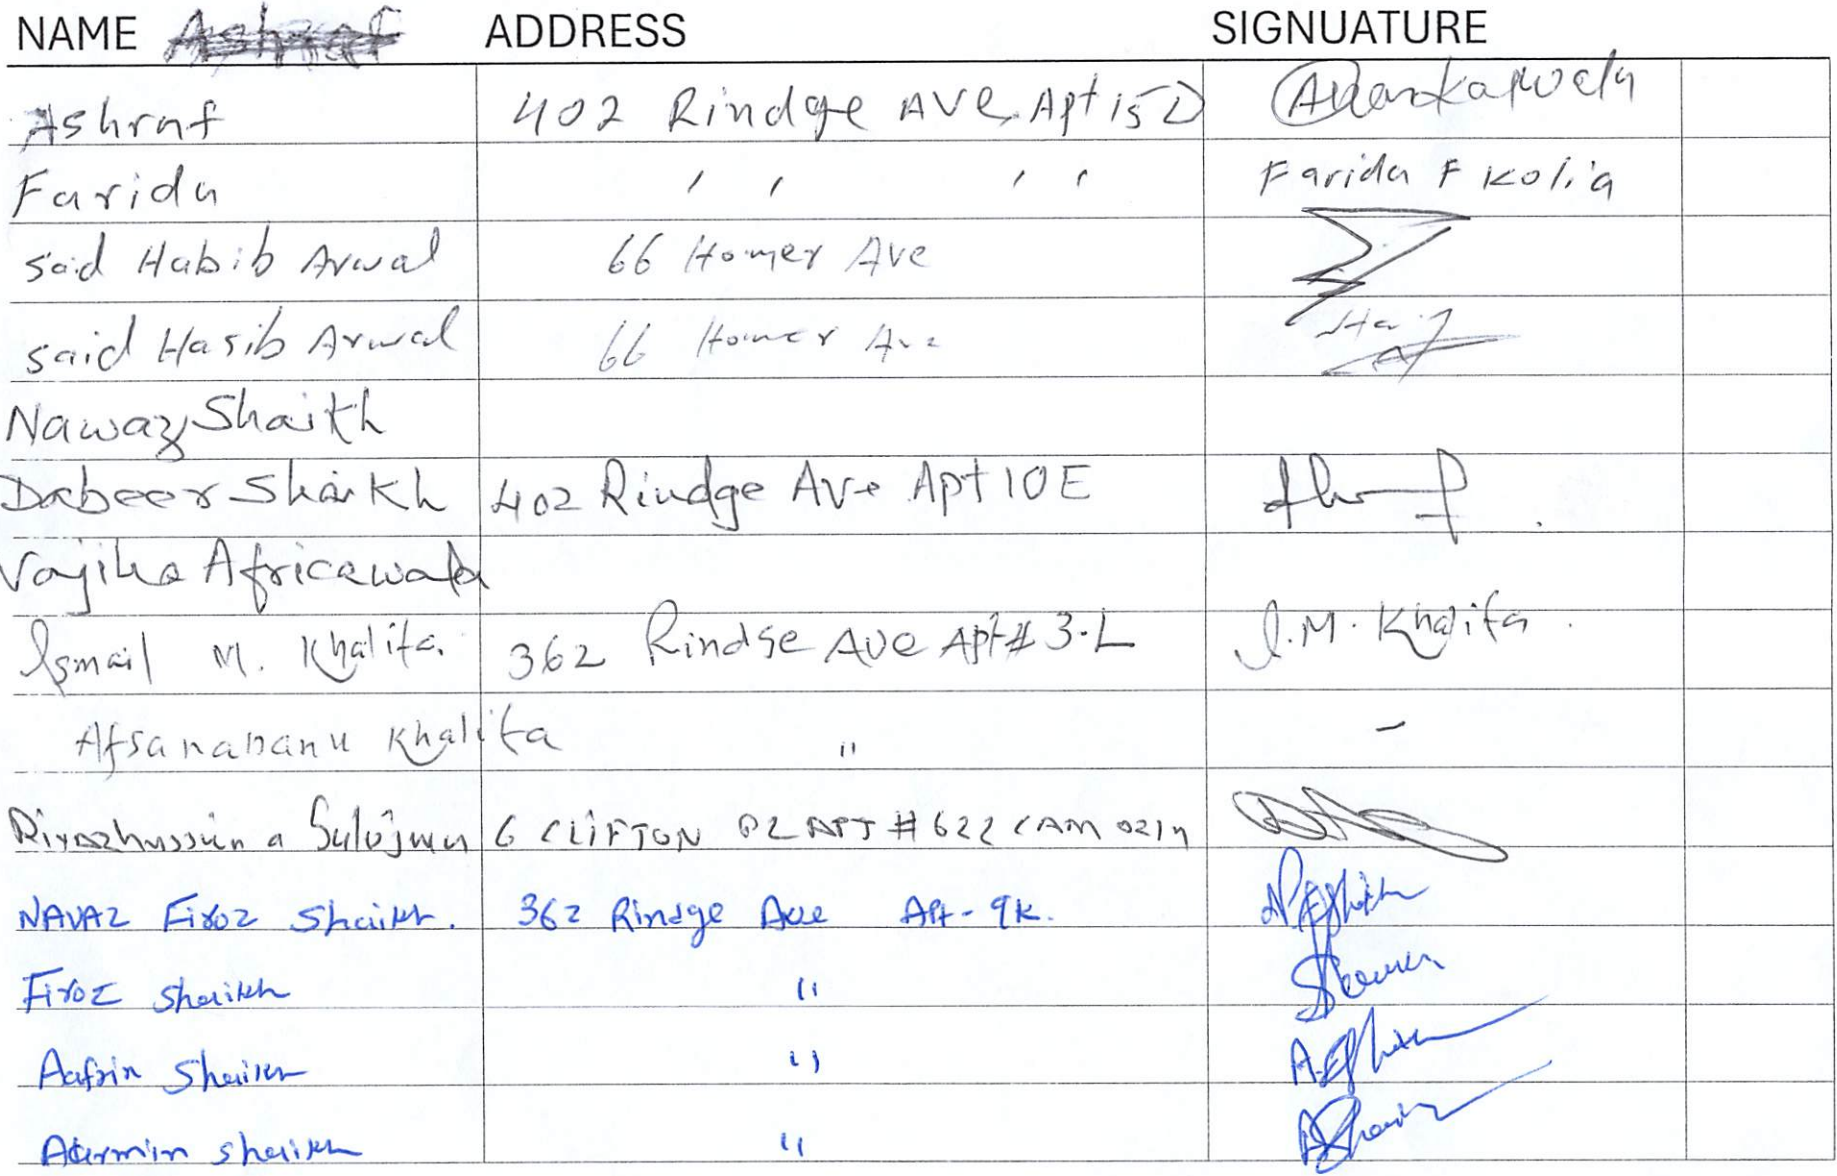 NAME ADDRESS SIGNUATURE
Ashraf 402 Rindge AVE, Apt 15D
Farida ′ ′ ′ ′ Farida F Kolia
said Habib Arwal 66 Homer Ave
said Hasib Arwal 66 Homer Ave
Nawaz Shaikh
Dabeer Shaikh 402 Rindge Ave Apt 10E
Africawala
Ismail M. Khalifa. 362 Rindge Ave Apt# 3-L I.M. Khalifa.
Afsanabanu Khalifa " -
6 CLIFTON PL APT #622 CAM
NAVAZ Firoz Shaikh. 362 Rindge Ave Apt- 9K.
Firoz Shaikh "
Aafrin Shaikh "
Shaikh "